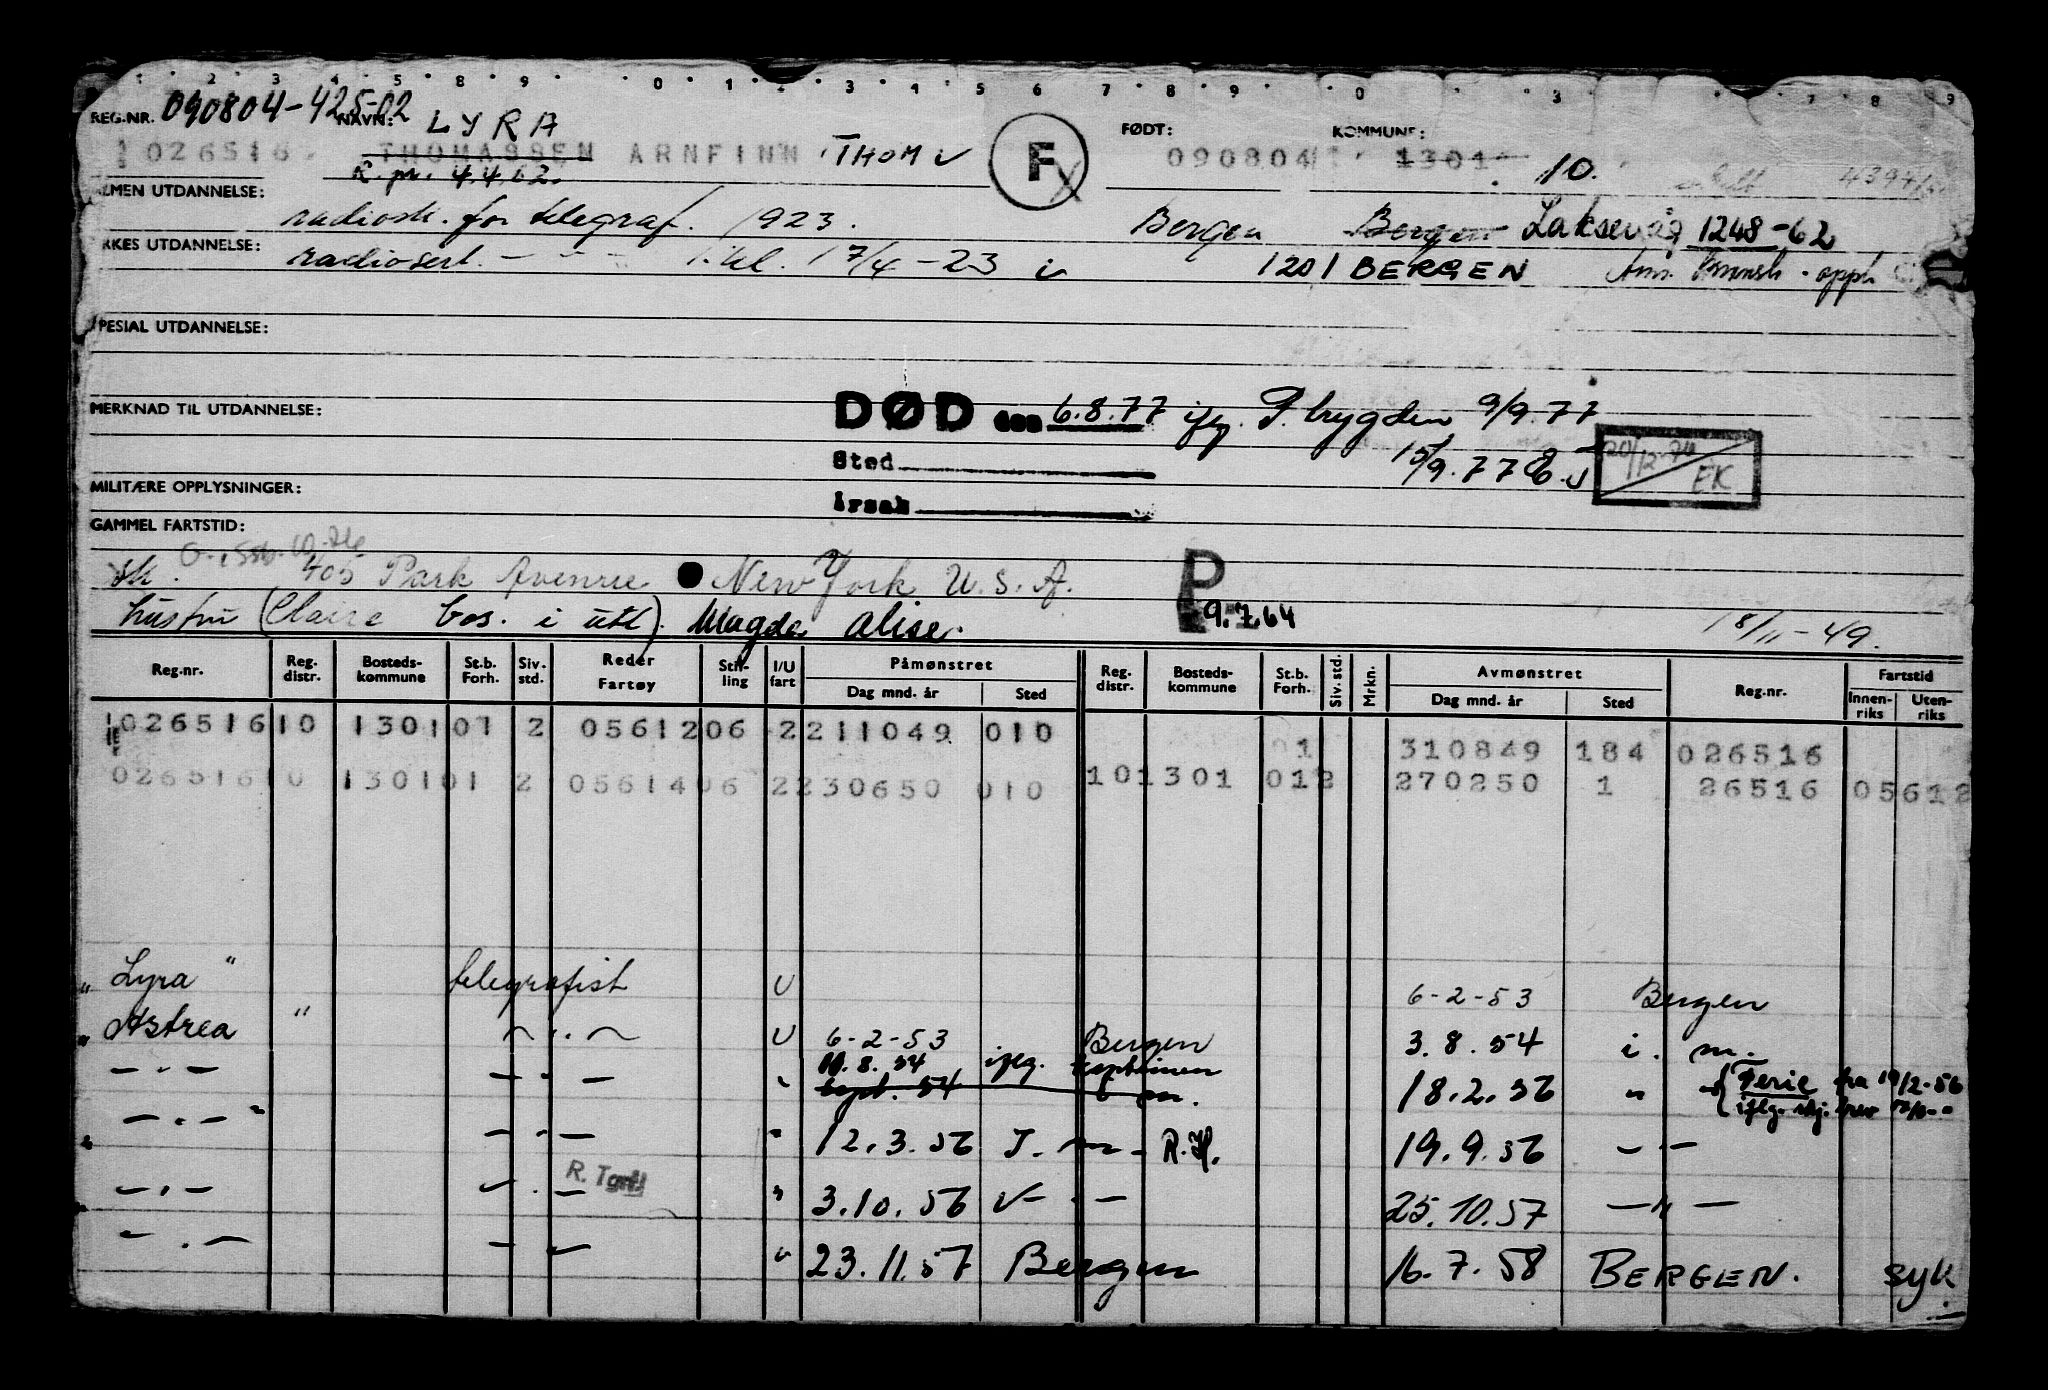 1 2 3 4 5 8 9 0 1 2 3 4 5 6 7 8 9 0 3 7 8 9
REG.NR. 090804-425-02 NAVN: LYRA FØDT: KOMMUNE:
026516 THOMASSEN ARNFINN THOM F 090804 1301 10.
R. pr. 4.4.62.
LMEN UTDANNELSE: radiosk. for telegraf. 1923. Bergen Bergen Laksevåg 1248-62
RKES UTDANNELSE: radiosert. — " — 1. kl. 17/4-23 1201 BERGEN
SPESIAL UTDANNELSE:
MERKNAD TIL UTDANNELSE: DØD den 6.8.77 ifg. P. trygden 9/9.77
Sted 15/9.77 20/12.74 EK
MILITÆRE OPPLYSNINGER: årsak
GAMMEL FARTSTID:
sk. 405 Park Avenue New York U.S.A. P
hustru (Claire bos. i utl). Magda Alise. 9.7.64 18/11-49.
Reg.nr. Reg. distr. Bosteds-kommune St.b. Forh. Siv. std. Reder Fartøy Stilling I/U fart Påmønstret Dag mnd. år Sted Reg. distr. Bosteds-kommune St.b. Forh. Siv. std. Mrkn. Avmønstret Dag mnd. år Sted Reg.nr. Fartstid Innen-riks Uten-riks
026516 10 1301 01 2 05612 06 2 211049 010 1 310849 184 026516
026516 10 1301 01 2 05614 06 2 230650 010 10 1301 01 2 270250 1 26516 05612
" Lyra " telegrafist U 6-2-53 Bergen
" Astrea " — " — U 6-2-53 Bergen 3.8.54 i. m.
— " — — " — " 10.8.54 iflg. kapteinen 18.2.56 " {Ferie fra 19/2-56
sept. 54 iflg. skj. brev
— " — — " — " 12.3.56 I. m. R.H. 19.9.56 — " —
R. Tgrf.
— " — — " — " 3.10.56 — " — 25.10.57 — " —
— " — — " — " 23.11.57 Bergen 16.7.58 BERGEN. syk.